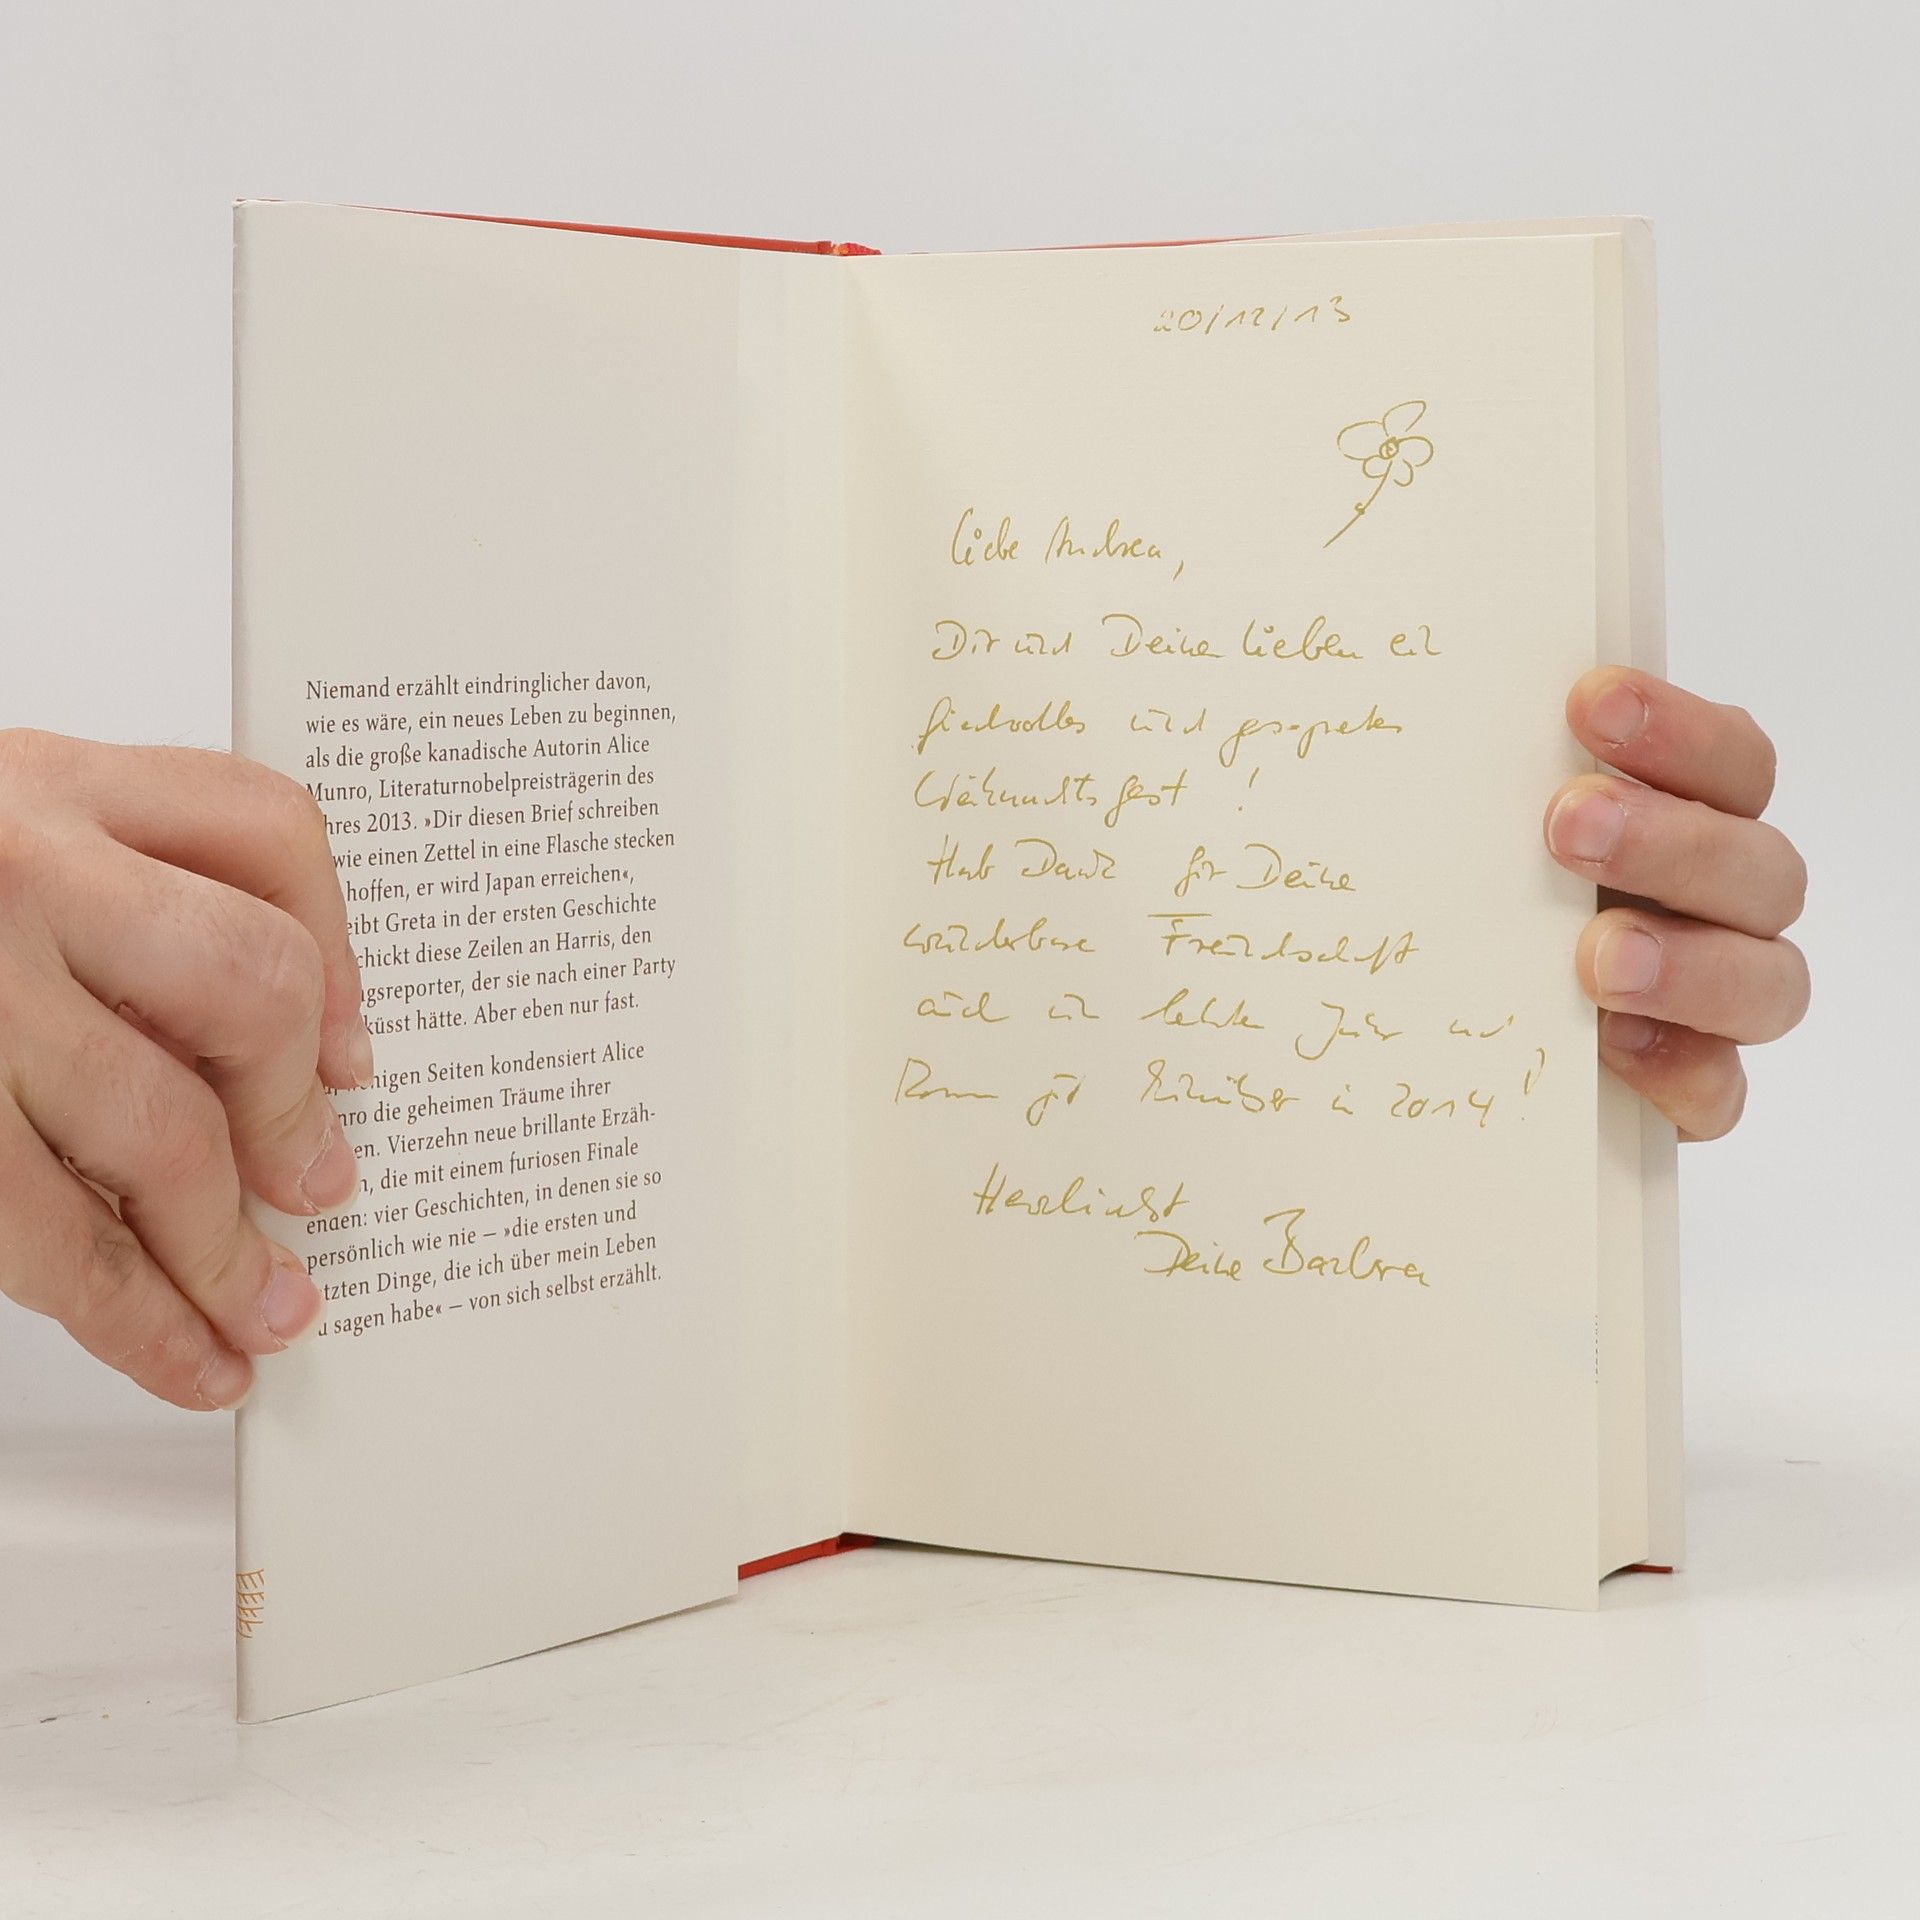 Niemand erzählt eindringlicher davon,
wie es wäre, ein neues Leben zu beginnen,
als die große kanadische Autorin Alice
Munro, Literaturnobelpreisträgerin des
hres 2013. »Dir diesen Brief schreiben
wie einen Zettel in eine Flasche stecken
hoffen, er wird Japan erreichen«,
eibt Greta in der ersten Geschichte
chickt diese Zeilen an Harris, den
gsreporter, der sie nach einer Party
küsst hätte. Aber eben nur fast.
nigen Seiten kondensiert Alice
nro die geheimen Träume ihrer
en. Vierzehn neue brillante Erzäh-
n, die mit einem furiosen Finale
enden: vier Geschichten, in denen sie so
persönlich wie nie – »die ersten und
tzten Dinge, die ich über mein Leben
u sagen habe« – von sich selbst erzählt.
20/12/13
Liebe Andrea,
Dir und Deinen Lieben ein
friedvolles und gesegnetes
Weihnachtsfest!
Hab Dank für Deine
wunderbare Freundschaft
auch im letzten Jahr und
komm gut hinüber in 2014!
Herzlichst
Deine Barbara